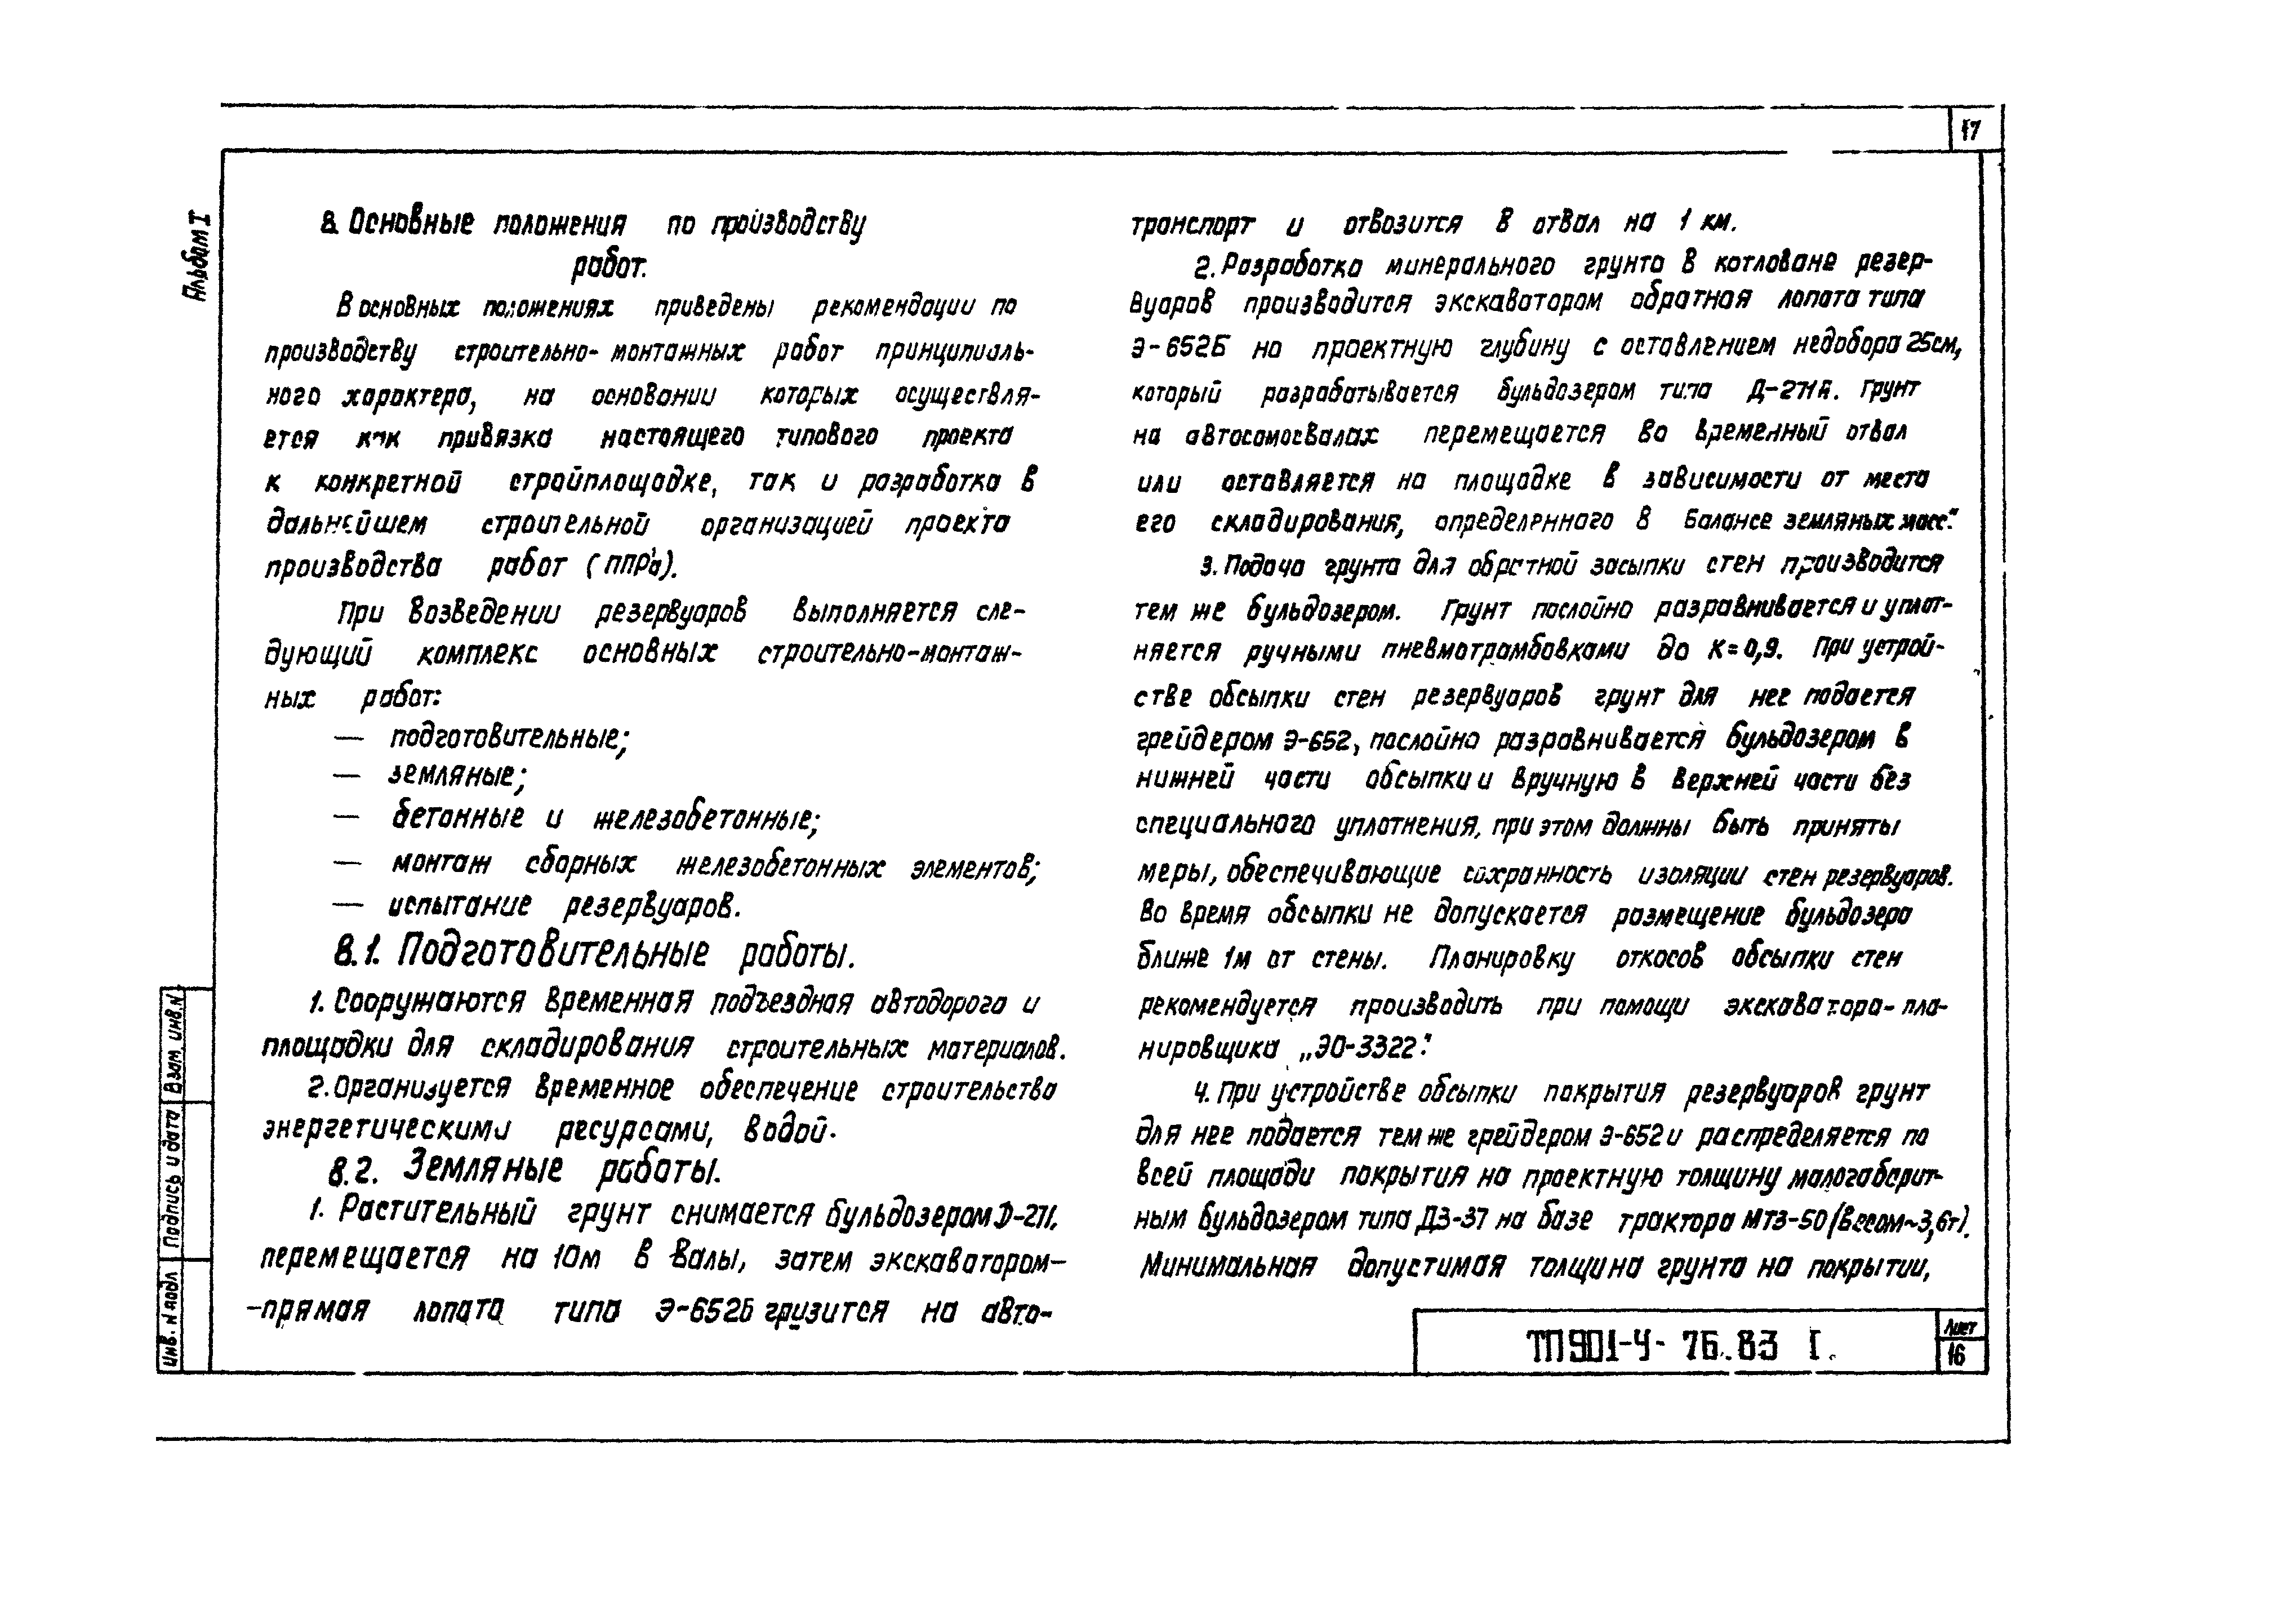 17
Альбом I
8. Основные положения по производству
работ.
В основных положениях приведены рекомендации по
производству строительно-монтажных работ принципиаль-
ного характера, на основании которых осуществля-
ется как привязка настоящего типового проекта
к конкретной стройплощадке, так и разработка в
дальнейшем строительной организацией проекта
производства работ (ППР'а).
При возведении резервуаров выполняется сле-
дующий комплекс основных строительно-монтаж-
ных работ:
— подготовительные;
— земляные;
— бетонные и железобетонные;
— монтаж сборных железобетонных элементов;
— испытание резервуаров.
8.1. Подготовительные работы.
1. Сооружаются временная подъездная автодорога и
площадки для складирования строительных материалов.
2. Организуется временное обеспечение строительства
энергетическими ресурсами, водой.
8.2. Земляные работы.
1. Растительный грунт снимается бульдозером Д-271,
перемещается на 10м в валы, затем экскаватором-
-прямая лопата типа Э-652Б грузится на авто-
транспорт и отвозится в отвал на 1 км.
2. Разработка минерального грунта в котловане резер-
вуаров производится экскаватором обратная лопата типа
Э-652Б на проектную глубину с оставлением недобора 25см,
который разрабатывается бульдозером типа Д-271А. Грунт
на автосамосвалах перемещается во временный отвал
или оставляется на площадке в зависимости от места
его складирования, определенного в балансе земляных масс."
3. Подача грунта для обратной засыпки стен производится
тем же бульдозером. Грунт послойно разравнивается и уплот-
няется ручными пневмотрамбовками до К=0,9. При устрой-
стве обсыпки стен резервуаров грунт для нее подается
грейдером Э-652, послойно разравнивается бульдозером в
нижней части обсыпки и вручную в верхней части без
специального уплотнения, при этом должны быть приняты
меры, обеспечивающие сохранность изоляции стен резервуаров.
Во время обсыпки не допускается размещение бульдозера
ближе 1м от стены. Планировку откосов обсыпки стен
рекомендуется производить при помощи экскаватора-пла-
нировщика „ЭО-3322".
4. При устройстве обсыпки покрытия резервуаров грунт
для нее подается тем же грейдером Э-652 и распределяется по
всей площади покрытия на проектную толщину малогаберит-
ным бульдозером типа ДЗ-37 на базе трактора МТЗ-50 (весом ~3,6т).
Минимальная допустимая толщина грунта на покрытии,
Взам. инв. N
Подпись и дата
Инв. N подл
ТП 901-4-76.83 I.
Лист
16